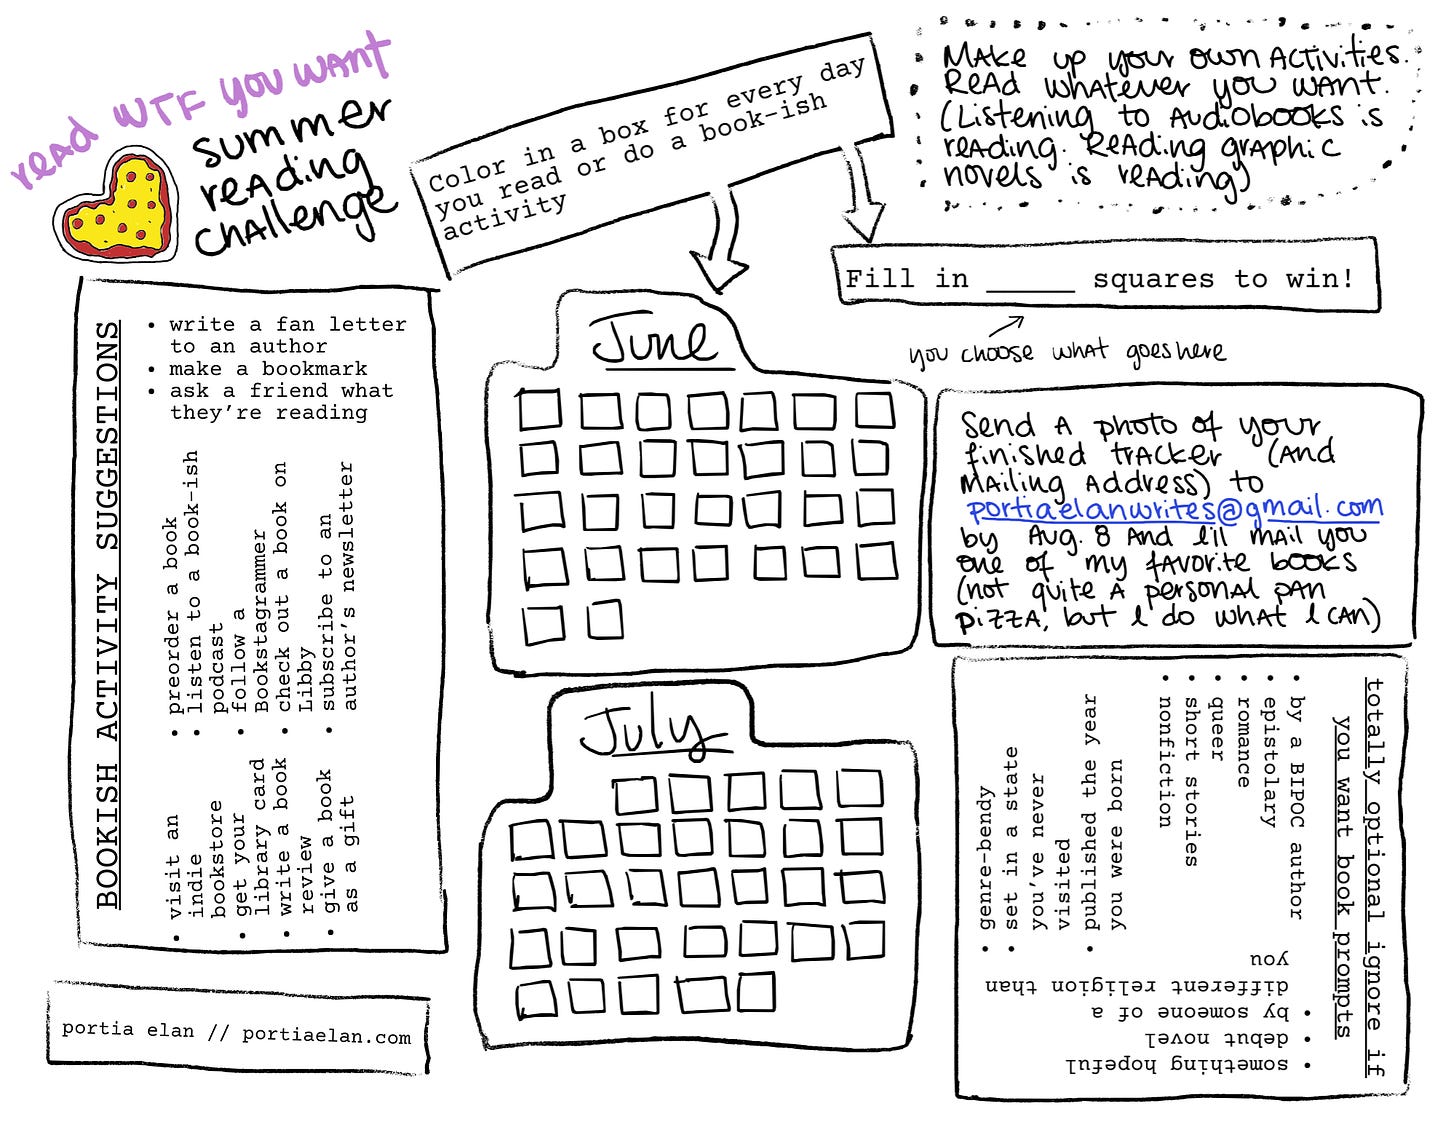 read WTF you want
summer
reading
challenge
Color in a box for every day
you read or do a book-ish
activity
Make up your own activities.
Read whatever you want.
(Listening to audiobooks is
reading. Reading graphic
novels is reading)
Fill in _____ squares to win!
you choose what goes here
BOOKISH ACTIVITY SUGGESTIONS
• write a fan letter
to an author
• make a bookmark
• ask a friend what
they're reading
• preorder a book
• listen to a book-ish
podcast
• follow a
Bookstagrammer
• check out a book on
Libby
• subscribe to an
author's newsletter
• visit an
indie
bookstore
• get your
library card
• write a book
review
• give a book
as a gift
June
July
Send a photo of your
finished tracker (and
mailing address) to
portiaelanwrites@gmail.com
by Aug. 8 and I'll mail you
one of my favorite books
(not quite a personal pan
pizza, but I do what I can)
totally optional ignore if
you want book prompts
• by a BIPOC author
• epistolary
• romance
• queer
• short stories
• nonfiction
• genre-bendy
• set in a state
you've never
visited
• published the year
you were born
• something hopeful
• debut novel
• by someone of a
different religion than
you
portia elan // portiaelan.com